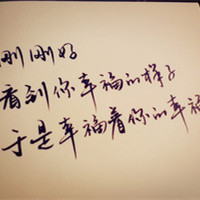 刚刚好
看到你幸福的样子
于是幸福着你的幸福